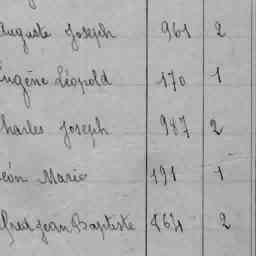 Auguste Joseph 961 2
Eugène Léopold 170 1
Charles Joseph 987 2
Léon Marie 191 1
Jean Baptiste 864 2